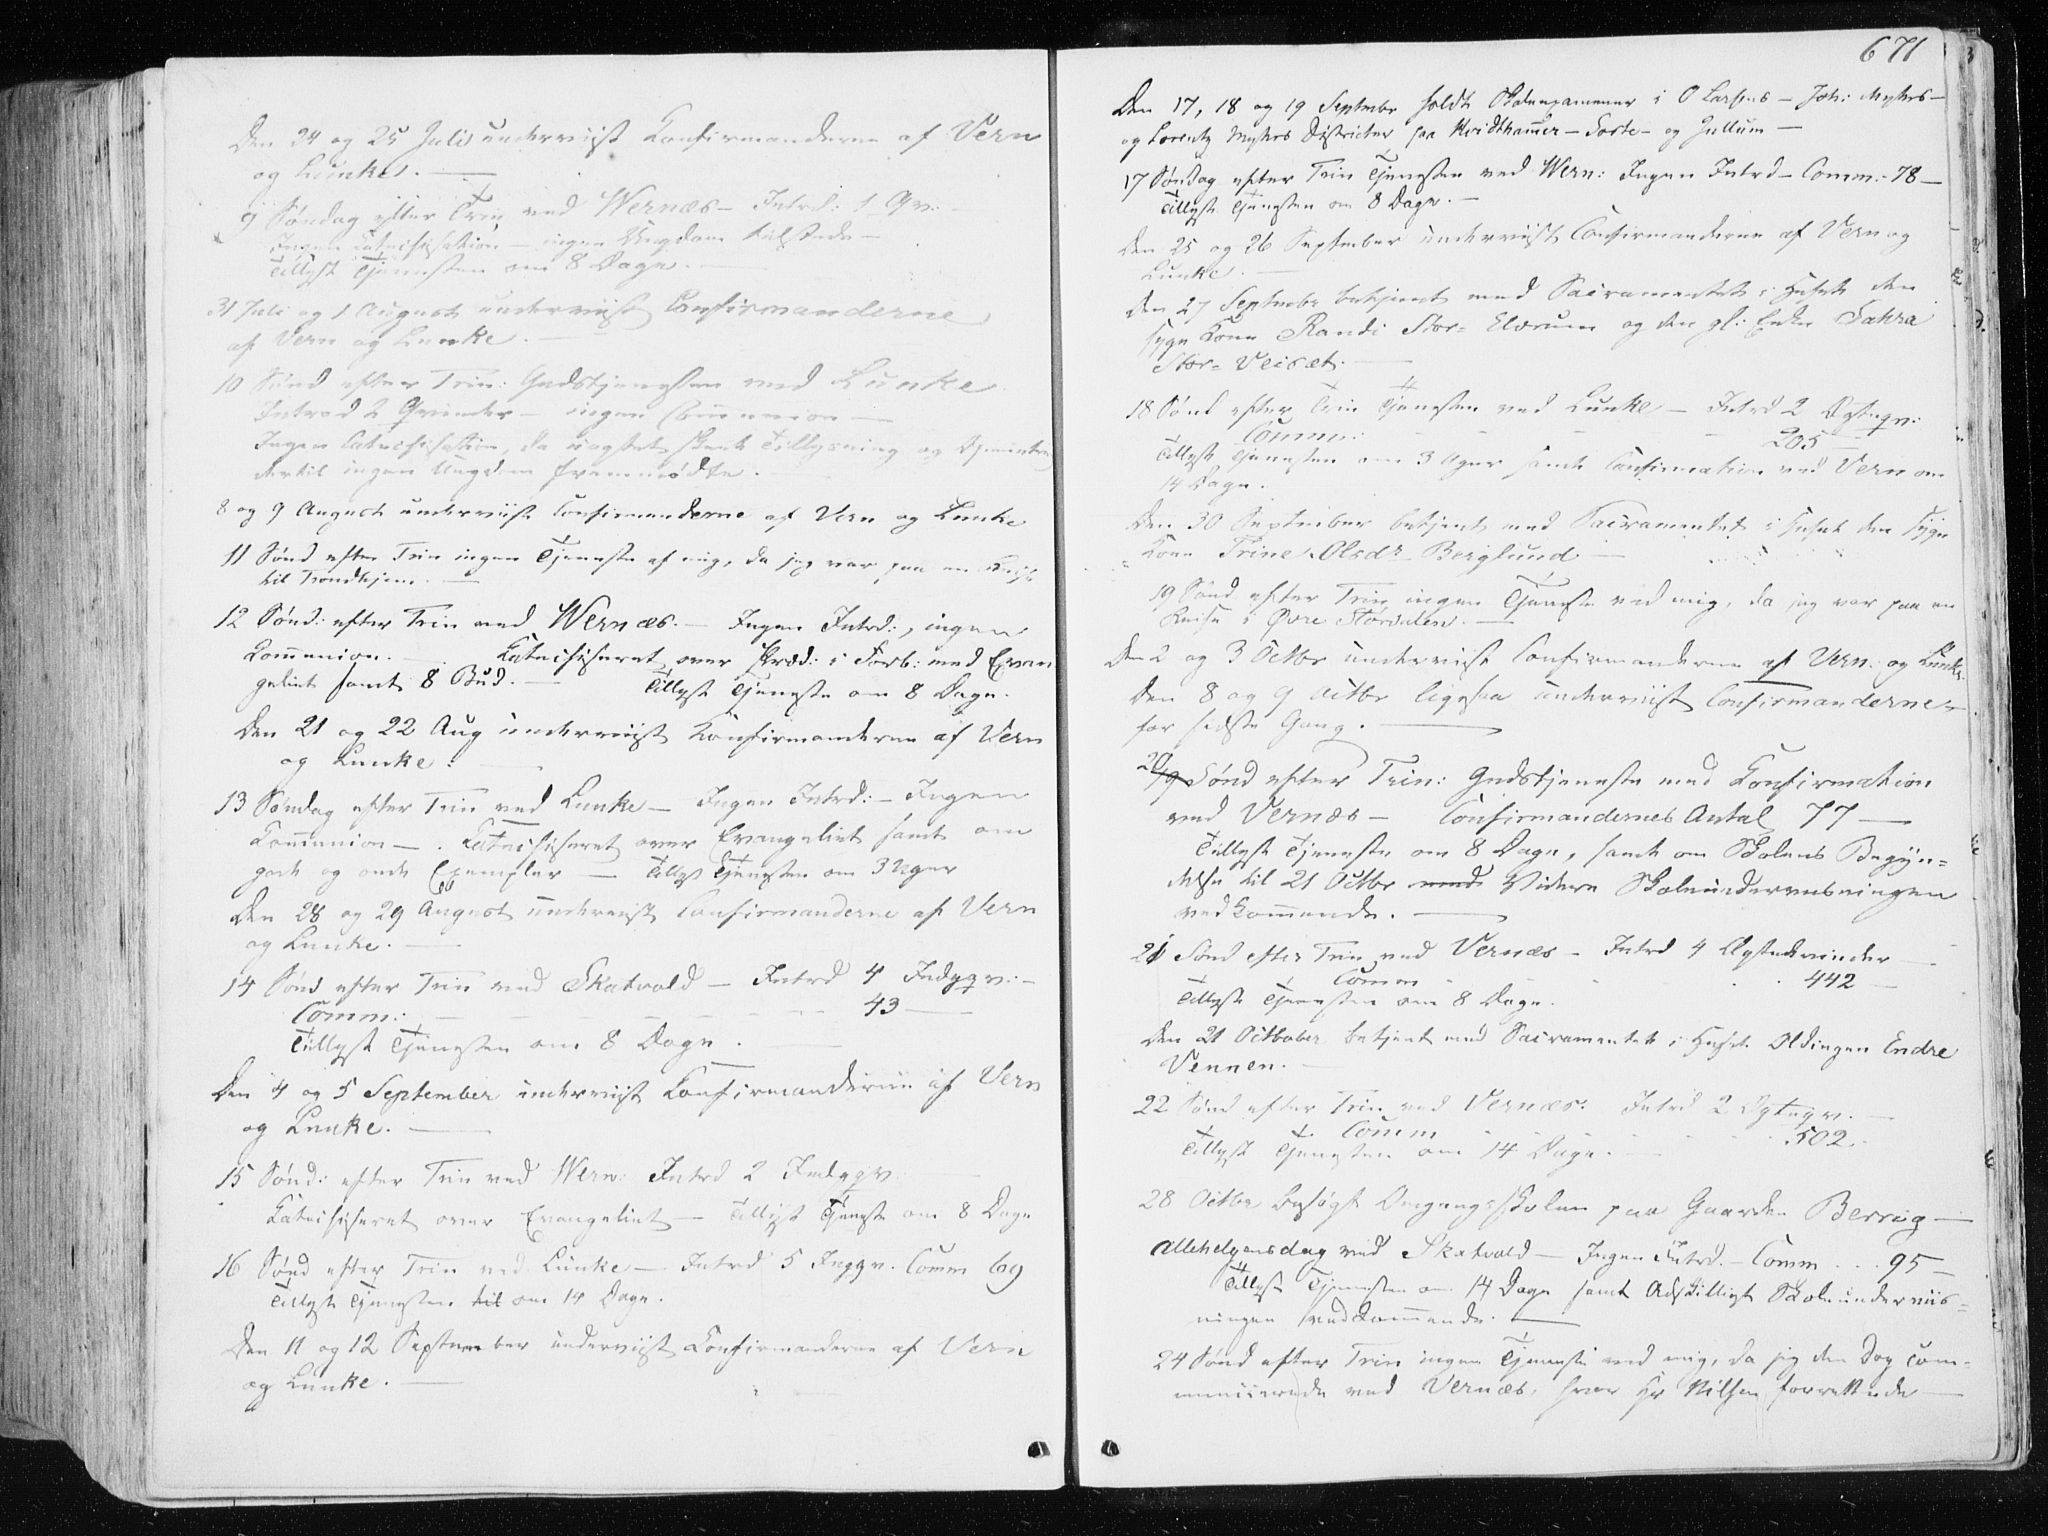 Den 24 og 25 Juli underviist Confirmanderne af Vern
og Lunke. —
9 Søndag efter Trin ved Wernæs — Introd: 1 Qv: —
Ingen Catechisation — ingen Ungdom tilstede —
Tillyst Tjenesten om 8 Dage. —
31 Juli og 1 August underviist Confirmanderne
af Vern og Lunke. —
10 Sønd efter Trin: Gudstjenesten ved Lunke
Introd 2 Qvinder — ingen Communion —
Ingen Catechisation, da uagtet skeet Tillysning og
dertil ingen Ungdom fremmødte.
8 og 9 August underviist Confirmanderne af Vern og Lunke
11 Sønd efter Trin ingen Tjeneste af mig, da jeg var paa en Reise
til Trondhjem. —
12 Sønd: efter Trin ved Wernæs. — Ingen Introd:, ingen
Communion. — Katechiseret over Præd: i Forb: med Evan
geliet samt 8 Bud. — Tillyst Tjeneste om 8 Dage.
Den 21 og 22 Aug underviist Konfirmanderne af Vern
og Lunke. —
13 Søndag efter Trin ved Lunke — Ingen Introd: — Ingen
Communion — . Katechiseret over Evangeliet samt om
godt og ondt Exempler — Tillyst Tjenesten om 3 Uger
Den 28 og 29 August underviist Confirmanderne af Vern
og Lunke. —
14 Sønd efter Trin ved Skatvold — Introd 4 Indgqv: —
Comm: — 43 —
Tillyst Tjenesten om 8 Dage. —
Den 4 og 5 September underviist Konfirmanderne af Vern
og Lunke. —
15 Sønd: efter Trin ved Wern: Introd 2 Indgqv:
Katechiseret over Evangeliet — Tillyst Tjeneste om 8 Dage
16 Sønd efter Trin ved Lunke — Introd 5 Inggv. Comm 69
Tillyst Tjenesten til om 14 Dage.
Den 11 og 12 September underviist Confirmanderne af Vern
og Lunke. —
671
Den 17, 18 og 19 Septembr holdt Skoleexamener i O Larsens — Joh: Myhrs —
og Lorentz Myhrs Districter paa Hvidthamer — Forte — og Gullum —
17 Søndag efter Trin Tjenesten ved Wern: Ingen Introd — Comm: 78 —
Tillyst Tjenesten om 8 Dage. —
Den 25 og 26 September underviist Confirmanderne af Vern og
Lunke. —
Den 27 Septembr betjent med Sacramentet i Huset den
syge Kone Randi Stor-Elvrum og den gl: Enke Sahra
Stor-Veiset. —
18 Sønd efter Trin Tjenesten ved Lunke — Introd 2 Ægteqv:
Comm: — 205 —
Tillyst Tjenesten om 3 Uger samt Confirmation ved Vern om
14 Dage.
Den 30 September betjent med Sacramentet i Huset den syge
Kone Trine Olsdr Berglund —
19 Sønd efter Trin ingen Tjeneste ved mig, da jeg var paa en
Reise i Øvre Størdalen. —
Den 2 og 3 Octbr underviist Confirmanderne af Vern: og Lunke.
Den 8 og 9 Octbr ligesaa underviist Confirmanderne
for sidste Gang. —
20 19 Sønd efter Trin: Gudstjeneste med Konfirmation
ved Vernæs — Confirmandernes Antal 77 —
Tillyst Tjeneste om 8 Dage, samt om Skolens Begyn-
delse til 21 Octbr med Videre Skoleunderviisningen
vedkommende. —
21 Sønd efter Trin ved Vernæs — Introd 4 Ægteqvinder —
Comm 442 —
Tillyst Tjenesten om 8 Dage.
Den 21 October betjent med Sacramentet i Huset Oldingen Endre
Vennen. —
22 Sønd efter Trin ved Vernæs: Introd 2 Ægteqv. —
Comm 502.
Tillyst Tjenesten om 14 Dage. —
28 Octbr besøgt Omgangsskolen paa Gaarden Berrig —
Allehelgensdag ved Skatvold — Ingen Introd. — Comm . . . 95 —
Tillyst Tjenesten om 14 Dage samt Adskilligt Skoleunderviis-
ningen vedkommende. —
24 Sønd efter Trin ingen Tjeneste ved mig, da jeg den Dag com-
municerede ved Vernæs, hvor Hr Nilsen forrettede —